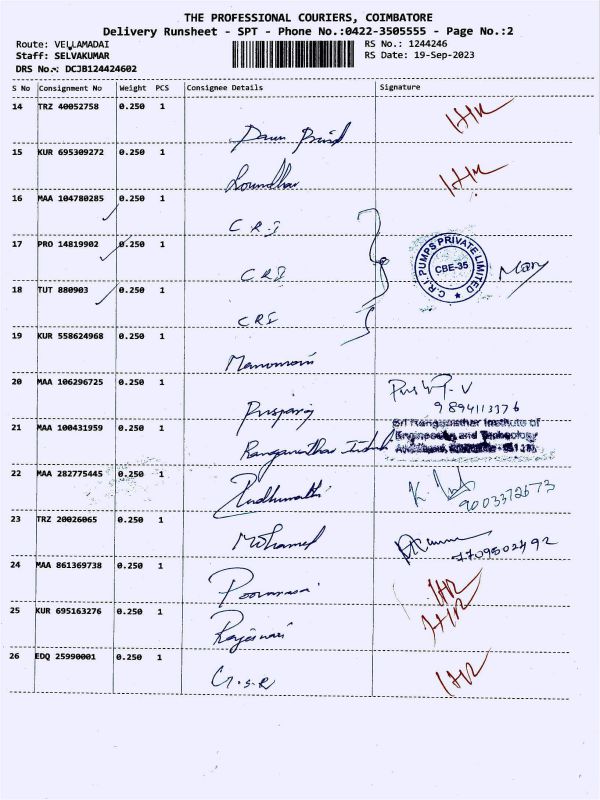 THE PROFESSIONAL COURIERS, COIMBATORE
Delivery Runsheet - SPT - Phone No.:0422-3505555 - Page No.:2
Route: VELLAMADAI RS No.: 1244246
Staff: SELVAKUMAR RS Date: 19-Sep-2023
DRS No.: DCJB124424602
S No Consignment No Weight PCS Consignee Details Signature
14 TRZ 40052758 0.250 1
15 KUR 695309272 0.250 1
16 MAA 104780285 0.250 1
C R I
17 PRO 14819902 0.250 1
CRI
C.R.I. PUMPS PRIVATE LIMITED
CBE-35
18 TUT 880903 0.250 1
CRI
19 KUR 558624968 0.250 1
Manomani
20 MAA 106296725 0.250 1
Pusparaj
9894113376
21 MAA 100431959 0.250 1
Ranganathar
Sri Ranganathar Institute of
Engineering and Technology
22 MAA 282775445 0.250 1
9003372673
23 TRZ 20026065 0.250 1
Mohamed
24 MAA 861369738 0.250 1
25 KUR 695163276 0.250 1
Rajeswari
26 EDQ 25990001 0.250 1
G.S.R